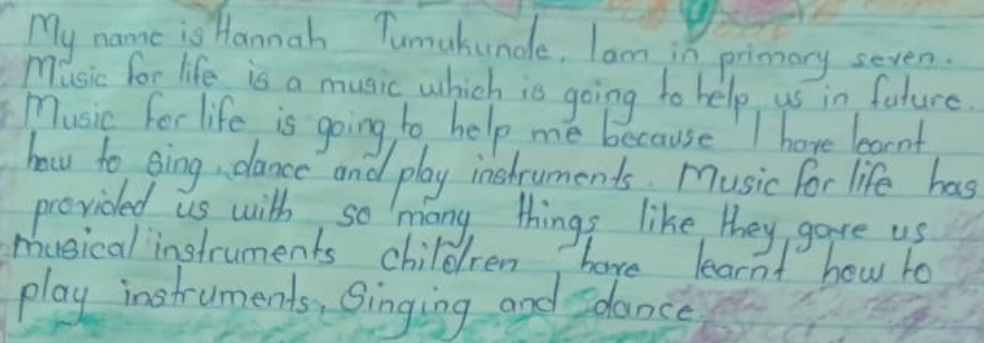 My name is Hannah Tumukunde. I am in primary seven.
Music for life is a music which is going to help us in future.
Music for life is going to help me because I have learnt
how to sing, dance and play instruments. Music for life has
provided us with so many things like they gave us
musical instruments children have learnt how to
play instruments, Singing and dance.